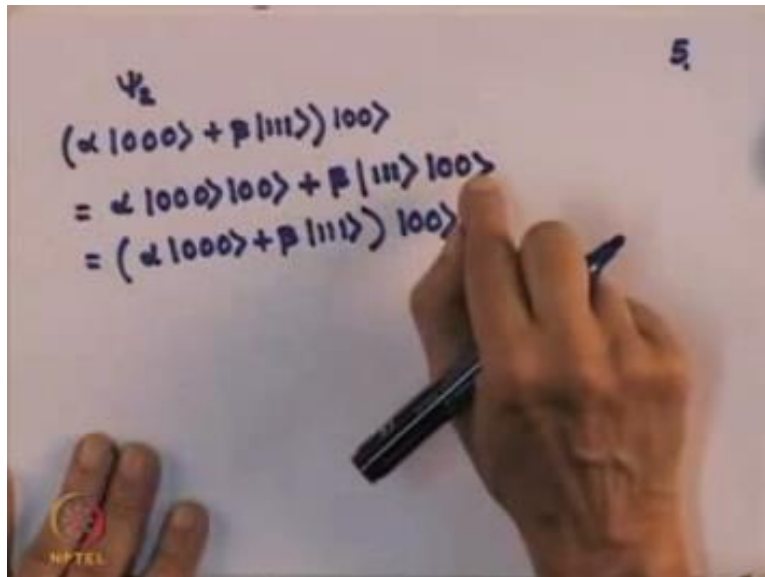 5.
ψ₂
(α|000⟩ + β|111⟩)|00⟩
= α|000⟩|00⟩ + β|111⟩|00⟩
= (α|000⟩ + β|111⟩)|00⟩
NPTEL